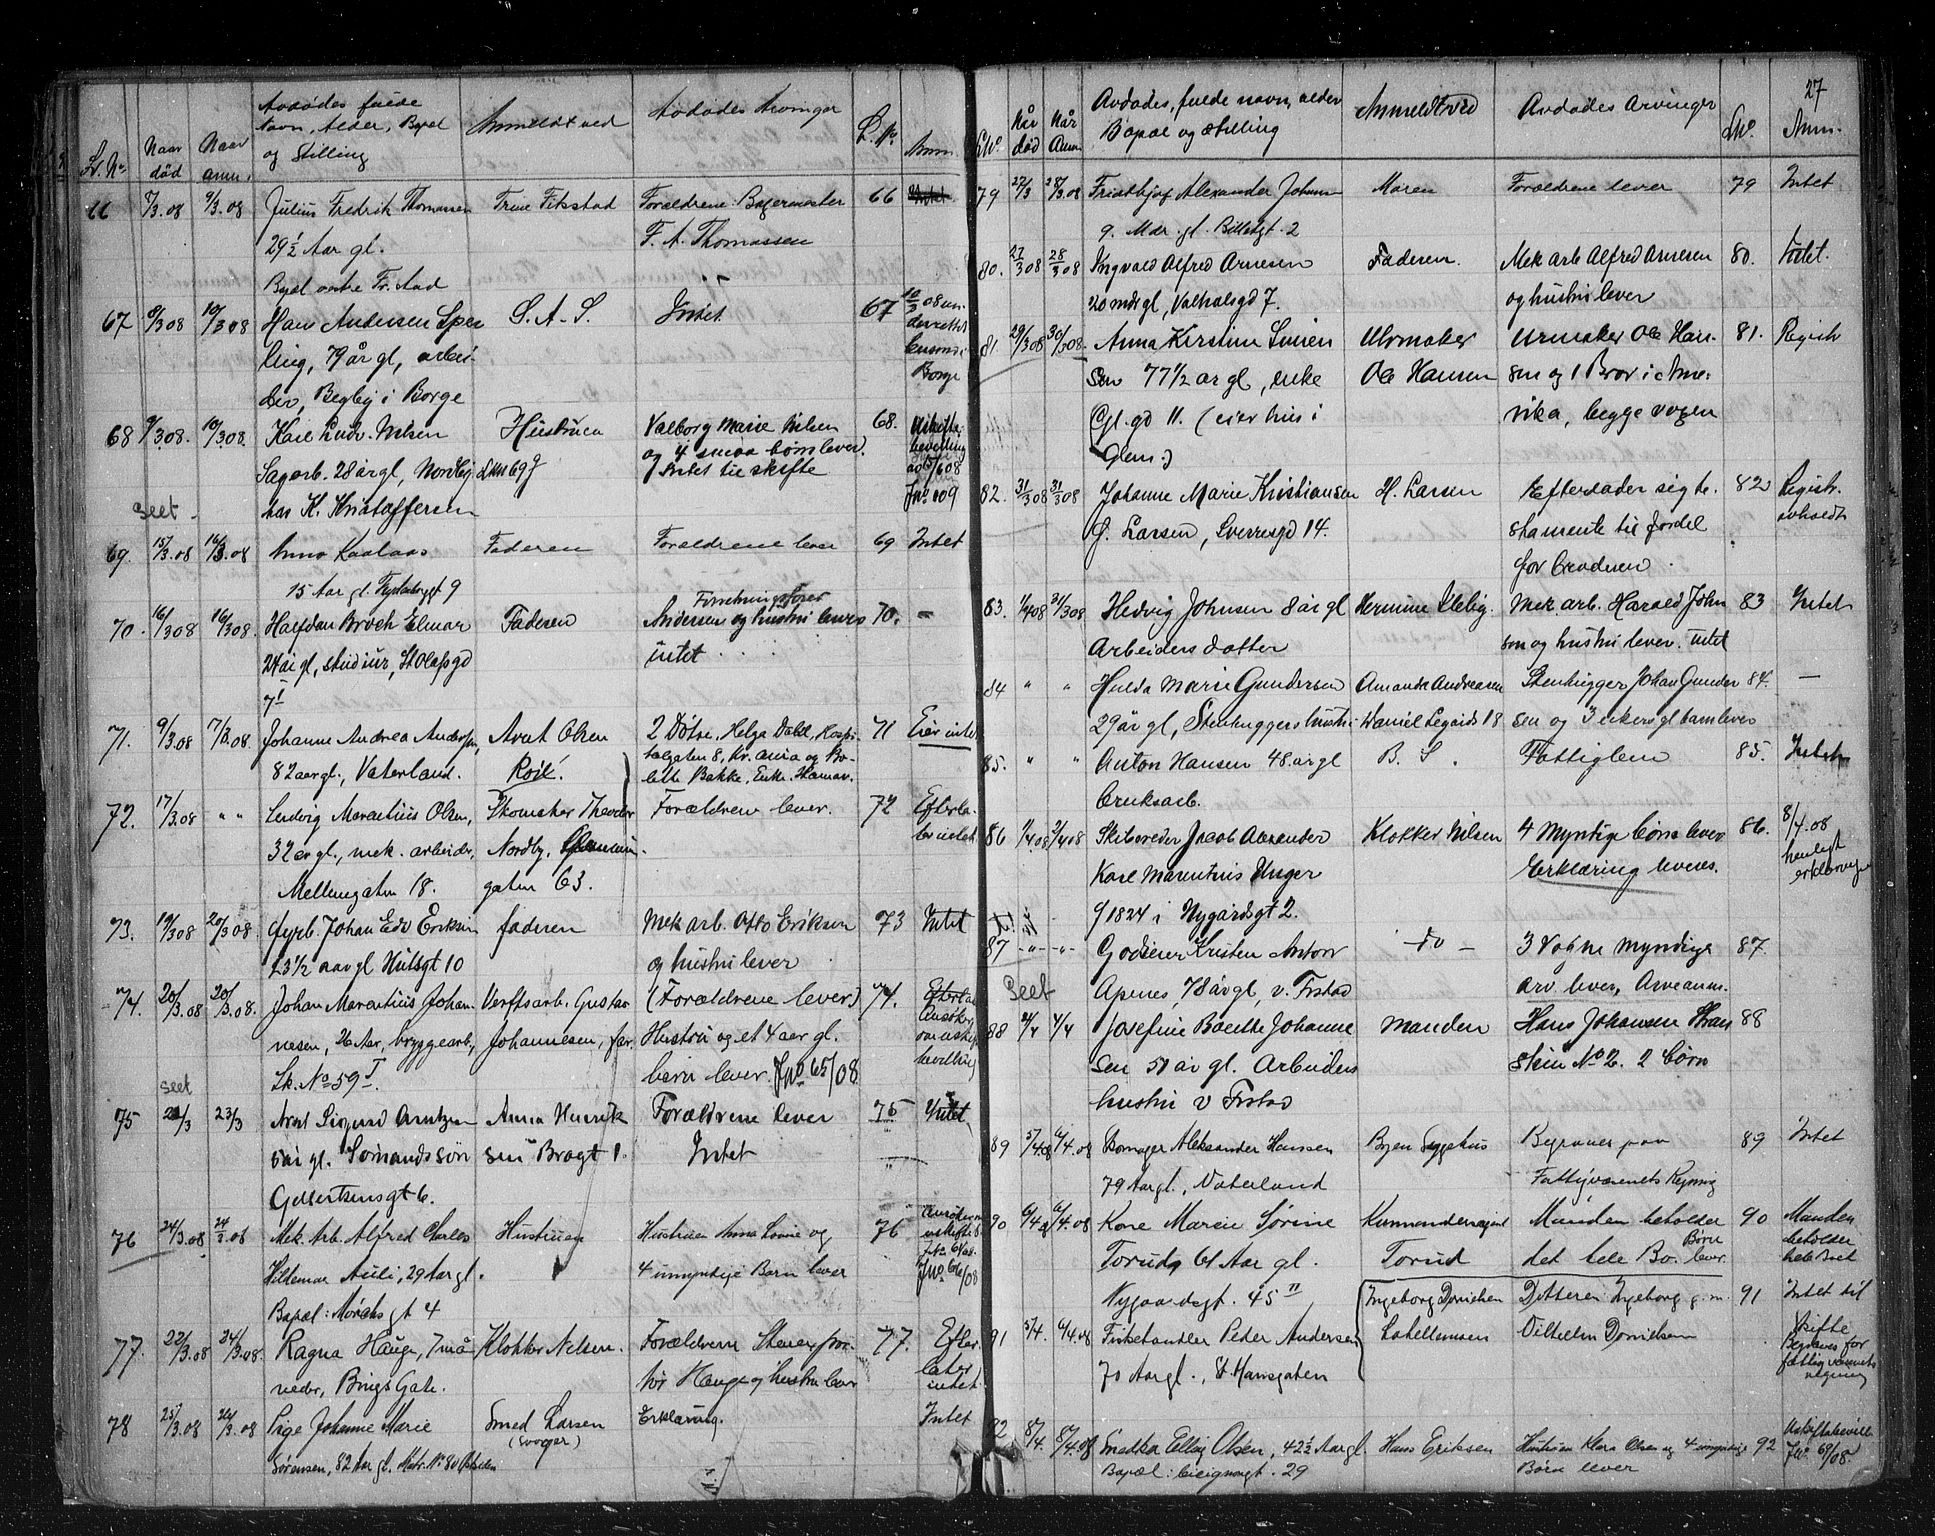 Avdødes fulde
Navn, Alder, Bopæl
og Stilling
Anmeldt ved
Avdødes Arvinger
L. No.
Anm.
Lb. No.
Naar
død
Naar
anm.
66 7/3.08 9/3.08 Julius Fredrik Thomassen
29 1/2 Aar gl.
Fr.stad
Forældrene: Bagermester
F. A. Thomassen
66 Intet
67 9/3 08 10/3 08 Hans Andersen Sper
ling, 79 år gl, arbei-
der, Begby i Borge
S. A. S.
Intet
67 10/3 08
Borge
68 9/3 08. 10/3 08. Karl Ludv. Nilsen
Sagarb. 28 år gl, Nordby
hos K. Kristoffersen
Hustruen
Valborg Marie Nilsen
og 4 smaa børn lever.
Intet til skifte
68. Uskifte
bevilling
Jno 109
seet
69. 15/3.08 16/3.08 Anna Kaalaas
15 Aar gl.
Faderen
Forældrene lever
69 Intet
70. 16/3 08 16/3 08 Halfdan Broch Elmar
24 år gl, studiur, St Olafsgd
7 I
Faderen
Forretningsfører
Andersen og hustru lever
intet
70. —
71. 9/3 08 17/3.08. Johanne Andrea Andersen,
82 aar gl., Vaterland.
Arnt Olsen
Roil.
2 Døtre, Helga Dahl, Hospi-
talgaten 8, Kr.ania og Bo-
lette Bakke, Enke, Hamar.
71 Eier intet
72. 17/3.08 " " Ludvig Marentius Olsen,
32 aar gl., mek. arbeider,
Mellemgaten 18.
Skomaker Theodor
Nordby,
gaten 63.
Forældrene lever.
72 Efterla-
der intet
73. 19/3 08 20/3 08. Fyrb. Johan Edv Eriksen
23 1/2 aar gl Hulsgt 10
faderen
Mek arb. Otto Eriksen
og hustru lever
73 Intet
74. 20/3.08 20/3.08. Johan Marentius Johan-
nesen, 26 Aar, bryggearb,
Lk. No 59 I
Verftsarb. Gustav
Johannesen, far.
(Forældrene lever)
Hustru og et 4 aar gl.
barn lever. Jno 65/08
74.
seet
75 22/3 23/3 Arnt Sigurd Arntzen
5 år gl. Sømandssøn
Gellertsensgt 6.
Anna Henrik
sen Brogt 1.
Forældrene lever
Intet
75 Intet
76 24/3.08 24/3.08 Mek. Arb. Alfred Charles
Hillemar Auli, 29 Aar gl.
Bopæl: Morchsgt 4
Hustruen
Hustruen Anna Lovise og
4 umyndige Børn lever
76
Jno. 66/08
77. 22/3.08 24/3.08. Ragna Hauge, 7 må-
neder, Brings Gate.
Klokker Nelsen.
Forældrene Stenexpor-
tør Hauge og hustru lever
77. Efter-
later
intet.
78 25/3.08 26/3.08 Pige Johanne Marie
Sørensen, 82 Aar gl. Matr. No 80
Smed Larsen
(svoger)
Erklæring.
Intet
27
LNo.
Når
død
Når
Anm.
Avdødes, fulde navn, alder
Bopæl og stilling
Anmeldt ved
Avdødes Arvinger
LNo.
Anm.
79 27/3 28/3.08 Fridthjof Alexander Johan
9. Mdr. gl. Billesgt. 2
Maren
Forældrene lever
79 Intet
80. 27/3 08 28/3 08 Yngvald Alfred Arnesen
20 mdr gl, Valhalsgd 7.
Faderen.
Mek arb Alfred Arnesen
og hustru lever
80. Intet.
81. 29/3 08 30/3 08. Anna Kirstine
Sen 77 1/2 år gl, enke
Gl. gd 11. (eier hus i
Glem.)
Uhrmaker
Ole Hansen
Urmaker Ole Han-
sen og 1 Bror i Ame-
rika, begge voxen
81. Registr
82. 31/3 08 31/3 08 Johanne Marie Kristiansen
f. Larsen, Sverresgd 14.
H. Larsen
Efterlader sig te-
stamente til fordel
for broderen.
82 Registr.
avholdt
83. 1/4 08 31/3 08 Hedvig Johnsen 8 år gl
Arbeiders datter
Hermine
Mek arb. Harald John
sen og hustru lever. intet
83 Intet
84 " " Hulda Marie Gundersen
29 år gl, Stenhuggers hustru
Amanda Andreasen
Daniel 18
Stenhugger Johan Gunder
sen og 3 barn lever
84. —
85. " " Anton Hansen 48 år gl
bruksarb.
B. S.
Fattiglem
85. Intet
86 1/4 08 2/4 08 Skibsreder Jacob Alexander
Karl Marentius Unger
f 1824 i Nygårdsgt 2.
Klokker Nilsen
4 Myndige børn lever
Erklæring leveres.
86. 8/4.08
henlagt
87 - " - - " - Godseier Kristen Anton
Apenes, 78 år gl, v. Frstad
- do -
3 Vogne myndige
arv. lever, Arveanm.
87.
Seet
88 2/4 4/4 Josefine Bolette Johanne
sen 51 år gl. Arbeiders
hustru v Frstad
Manden
Hans Johansen Stran
skin No 2. 2 børn
88
89 5/4.08 6/4.08 Skomager Aleksander Hansen
79 Aar gl., Vaterland
Byen Sygehus
Begraves paa
Fattigvæsenets Regning
89 Intet
90 6/4.08 6/4.08 Kone Maren Sørine
Torud, 61 Aar gl.
Nygaardsgt. 45 II
Torud
Manden beholder
det hele Bo. Børn lever.
90 Manden
beholder
hele Boet
91 5/4. 6/4.08 Fiskehandler Peder Andersen
70 Aar gl., St. Hansgaten
Ingeborg Danielsen
Datteren Ingeborg g. m.
Vilhelm Danielsen
91 Intet til
skifte
Begraves for
fattigvæsenets
regning
92 8/4. 8/4.08 Snedker Ellef Olsen, 42 1/2 Aar gl.
Bopæl: 29
Hans Eriksen
Hustruen Klara Olsen og 4 umyndige
Børn lever
92 Uskiftebevill.
Jno. 69/08.